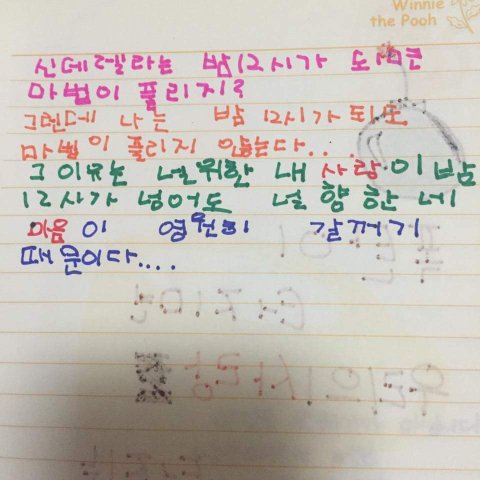 Winnie
the Pooh
신데렐라는 밤12시가 되면
마법이 풀리지?
그런데 나는 밤 12시가 되도
마법이 풀리지 않는다..
그 이유는 널위한 내 사랑이 밤
12시가 넘어도 널 향한 내
마음이 영원히 갈꺼기
때문이다....
터지면
우리의사랑